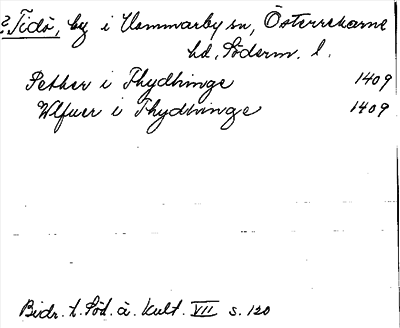 ? Tidö, by i Vammarby sn, Österrekarne
hd, Söderm. l.
Petker i Thydhinge 1409
Wlfuer i Thydhinge 1409
Bidr. t. Söd. ä. Kult. VII s. 120